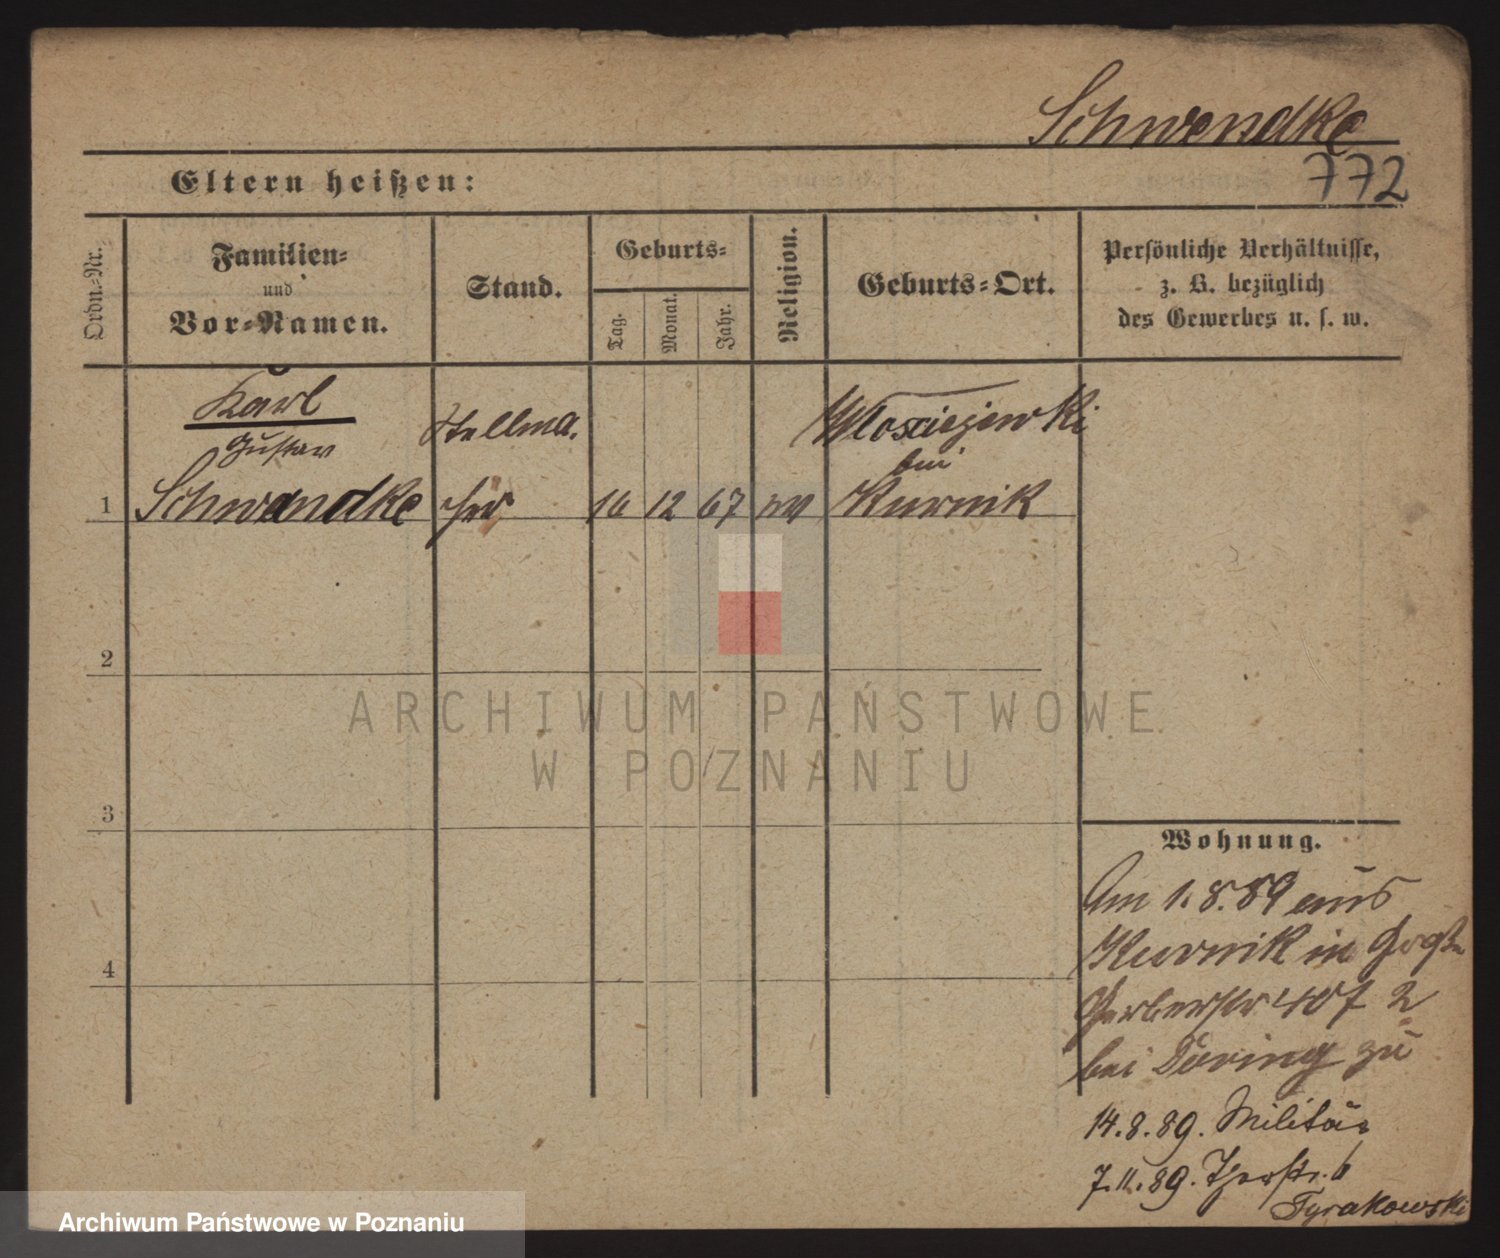 Schwendke
772
Eltern heißen:
Ordn.-Nr.
Familien-
und
Vor-Namen.
Stand.
Geburts-
Tag.
Monat.
Jahr.
Religion.
Geburts-Ort.
Persönliche Verhältnisse,
z. B. bezüglich
des Gewerbes u. s. w.
Karl
Gustav
Schwandke
Stellma-
cher
16
12
67
Wlosciejewki
bei
Kurnik
1
2
3
4
ARCHIWUM PAŃSTWOWE
W POZNANIU
Wohnung.
Am 1.8.89 aus
Kurnik in Große
Gerberstr 40 2
bei Döring zu
14.8.89. Militär
7.11.89. 6
Tyrakowski
Archiwum Państwowe w Poznaniu